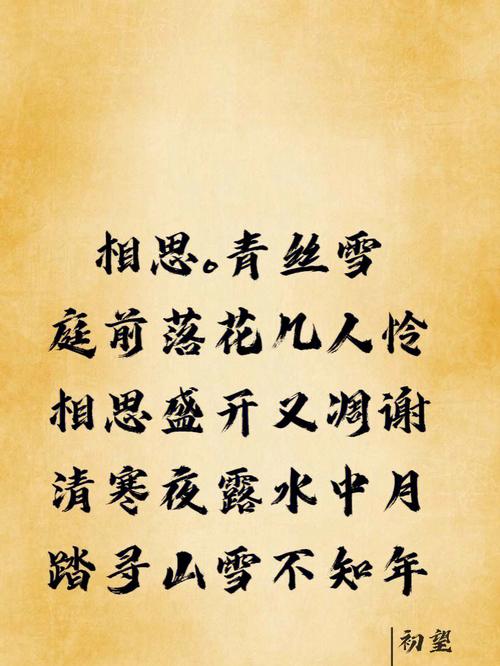 相思。青丝雪
庭前落花几人怜
相思盛开又凋谢
清寒夜露水中月
踏寻山雪不知年
初望